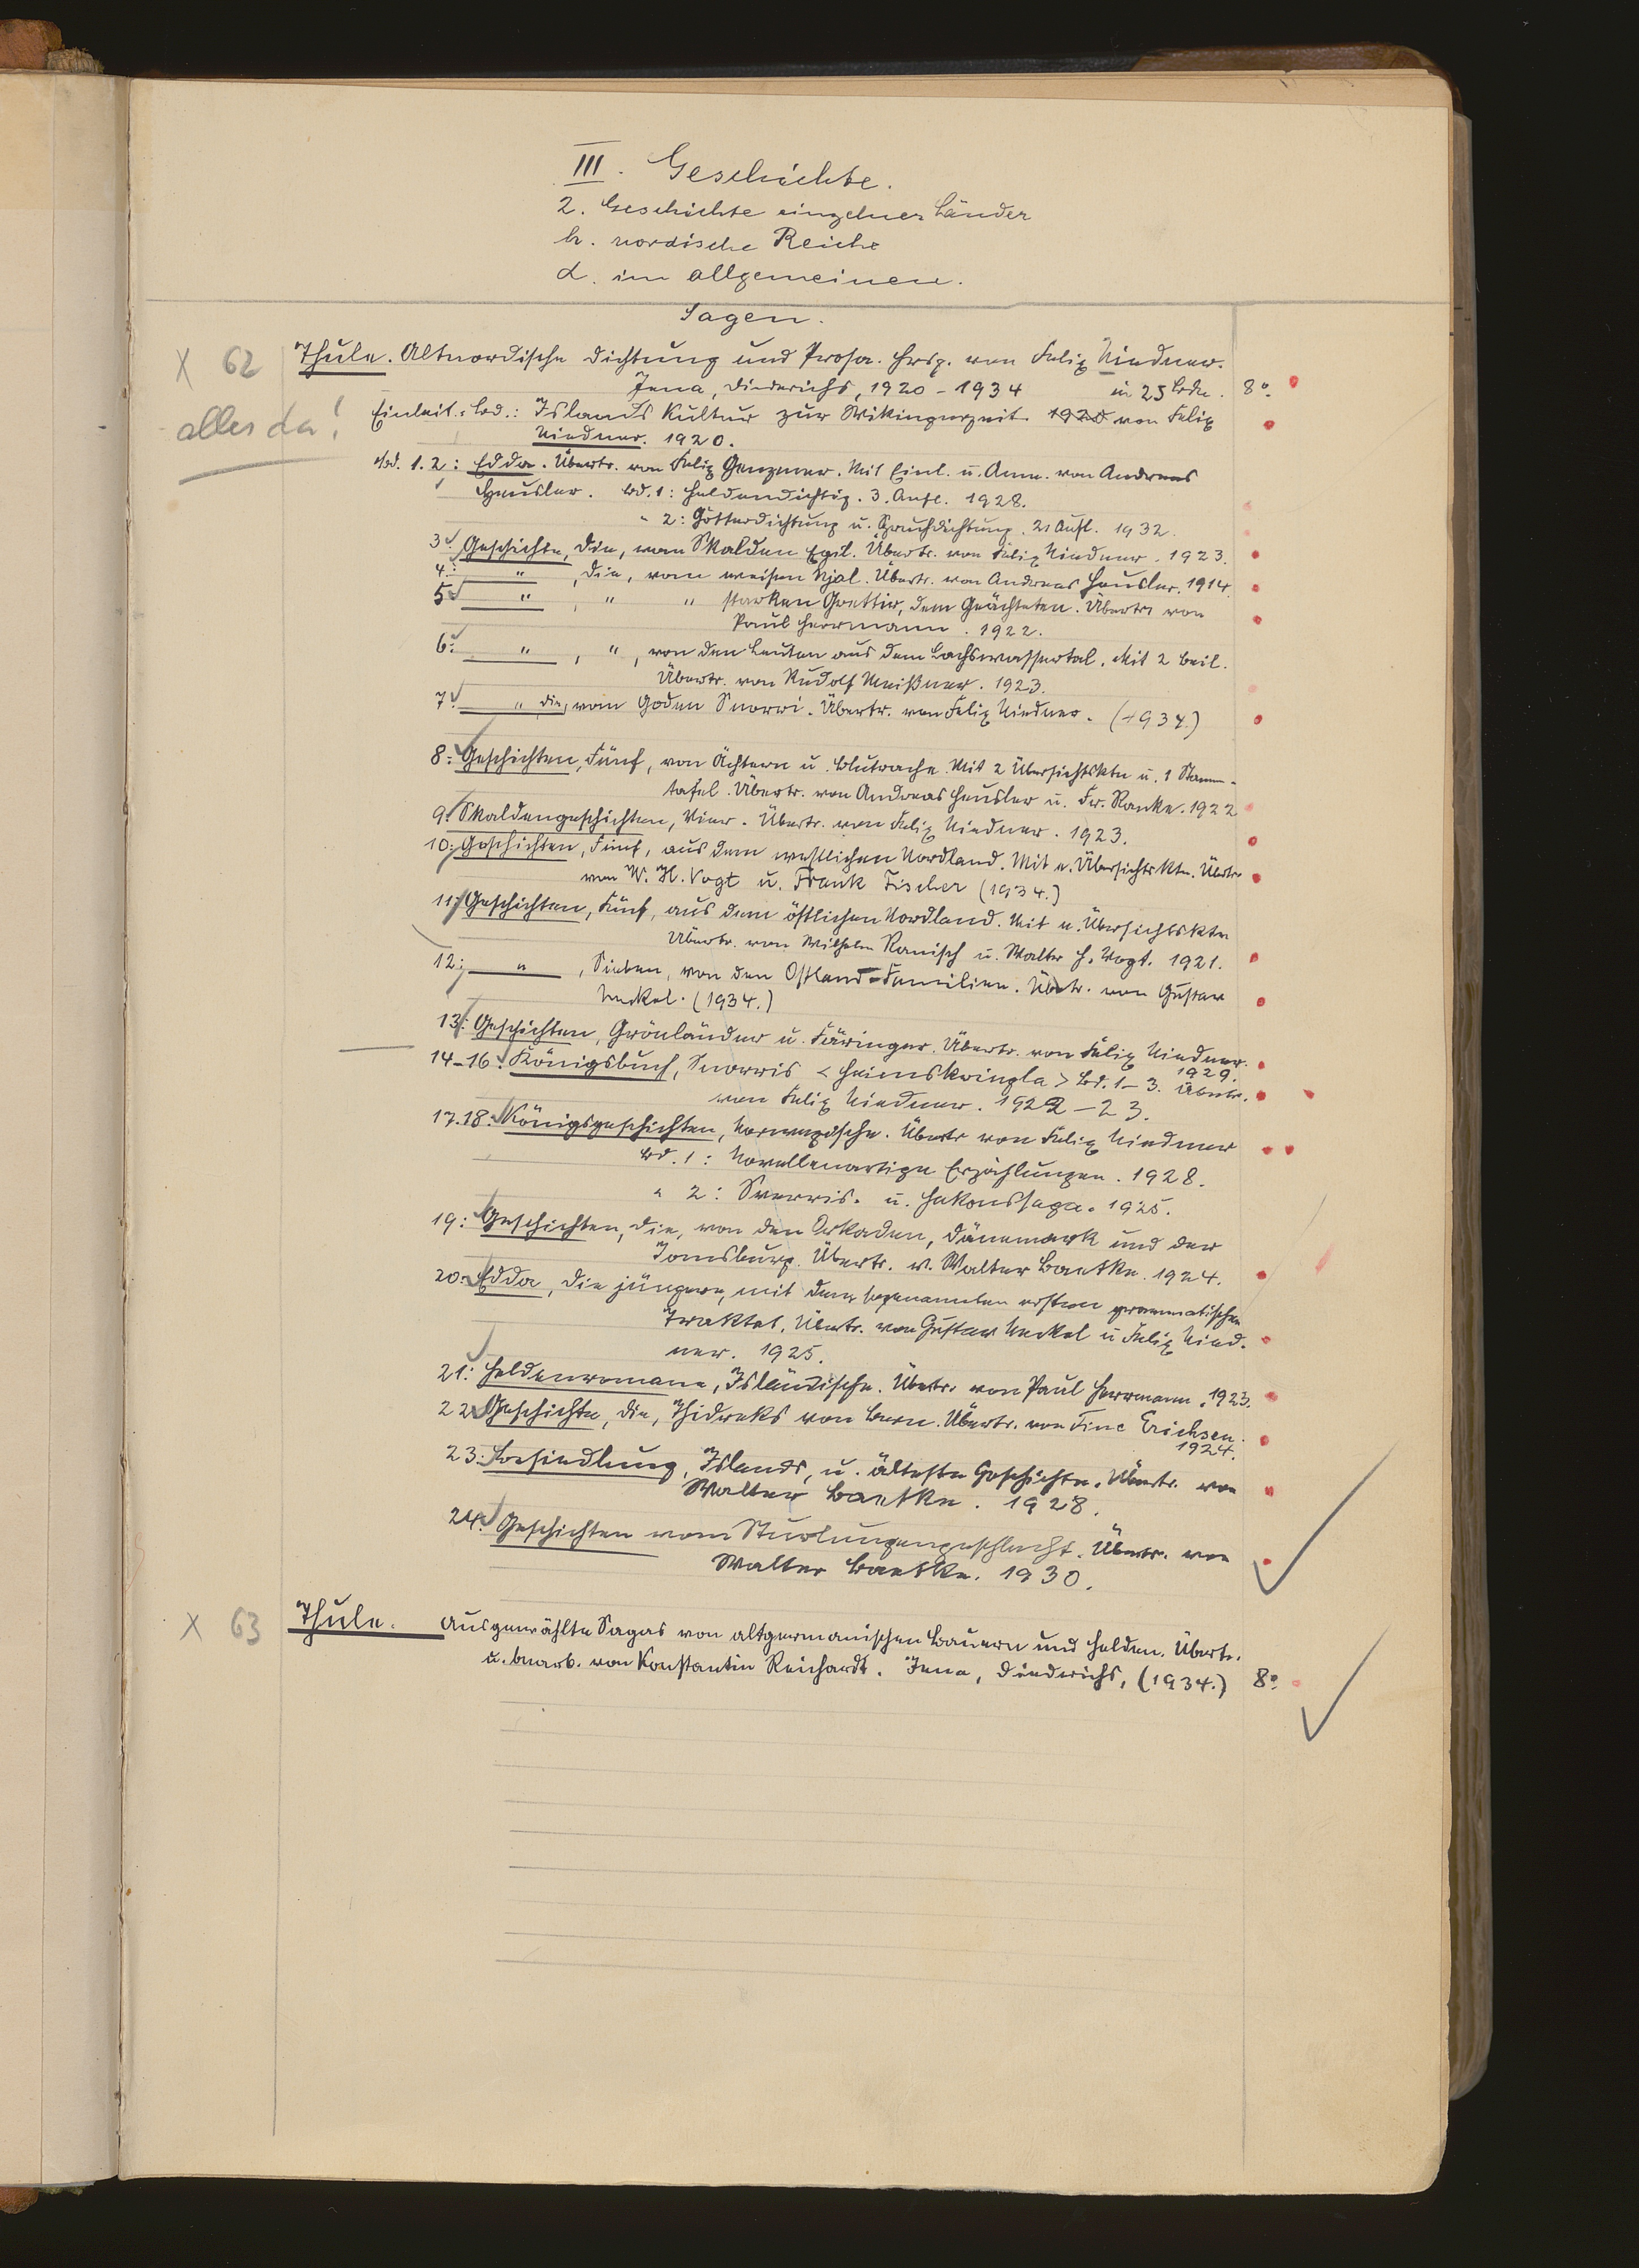 III. Geschichte.
2. Geschichte einzelner Länder
b. nordische Reiche
α. im allgemeinen.
Sagen.
X 62 Thule. Altnordische Dichtung und Prosa. Hrsg. von Felix Niedner.
Jena, Diederichs, 1920-1934 in 25 Bdn. 8°.
alles da!
Einleit.-Bd.: Islands Kultur zur Wikingerzeit. 1920 von Felix
Niedner. 1920.
Bd. 1. 2: Edda. Übertr. von Felix Genzmer. Mit Einl. u. Anm. von Andreas
Heusler. Bd. 1: Heldendichtg. 3. Aufl. 1928.
" 2: Götterdichtung u. Spruchdichtung. 2. Aufl. 1932.
3: Geschichte, Die, vom Skalden Egil. Übertr. von Felix Niedner. 1923.
4: " , Die, vom weisen Njal. Übertr. von Andreas Heusler. 1914.
5: " , " " starken Grettir, dem Geächteten. Übertr. von
Paul Herrmann. 1922.
6: " , " , von den Leuten aus dem Lachswassertal. Mit 2 Beil.
Übertr. von Rudolf Meißner. 1923.
7: " die, vom Goden Snorri. Übertr. von Felix Niedner. (1934.)
8: Geschichten, Fünf, von Ächtern u. Blutrache. Mit 2 Übersichtsktn u. 1 Stamm-
tafel. Übertr. von Andreas Heusler u. Fr. Ranke. 1922
9: Skaldengeschichten, Vier. Übertr. von Felix Niedner. 1923.
10: Geschichten, Fünf, aus dem westlichen Nordland. Mit e. Übersichtsktn. Übertr.
von W. H. Vogt u. Frank Fischer (1934.)
11: Geschichten, Fünf, aus dem östlichen Nordland. Mit e. Übersichtsktn
Übertr. von Wilhelm Ranisch u. Walter H. Vogt. 1921.
12: " , Sieben, von den Ostland-Familien. Übertr. von Gustav
Neckel. (1934.)
13: Geschichten, Grönländer u. Färinger. Übertr. von Felix Niedner.
1929.
14-16: Königsbuch, Snorris <Heimskringla> Bd. 1-3. Übertr.
von Felix Niedner. 1922-23.
17.18: Königsgeschichten, Norwegische. Übertr von Felix Niedner
Bd. 1: Novellenartige Erzählungen. 1928.
" 2: Sverris- u. Hakonssaga. 1925.
19: Geschichten, Die, von den Orkaden, Dänemark und der
Jomsburg. Übertr. v. Walter Baetke. 1924.
20: Edda, Die jüngere, mit dem sogenannten ersten grammatischen
Traktat. Übertr. von Gustav Neckel u Felix Nied-
ner. 1925.
21: Heldenromane, Isländische. Übertr. von Paul Herrmann. 1923.
22: Geschichte, Die, Thidreks von Bern. Übertr. von Fine Erichsen.
1924.
23: Besiedlung, Islands, u. älteste Geschichte. Übertr. von
Walter Baetke. 1928.
24: Geschichten vom Sturlungengeschlecht. Übertr. von
Walter Baetke. 1930.
X 63 Thule. Ausgewählte Sagas von altgermanischen Bauern und Helden. Übertr.
u. bearb. von Konstantin Reichardt. Jena, Diederichs, (1934.) 8°.